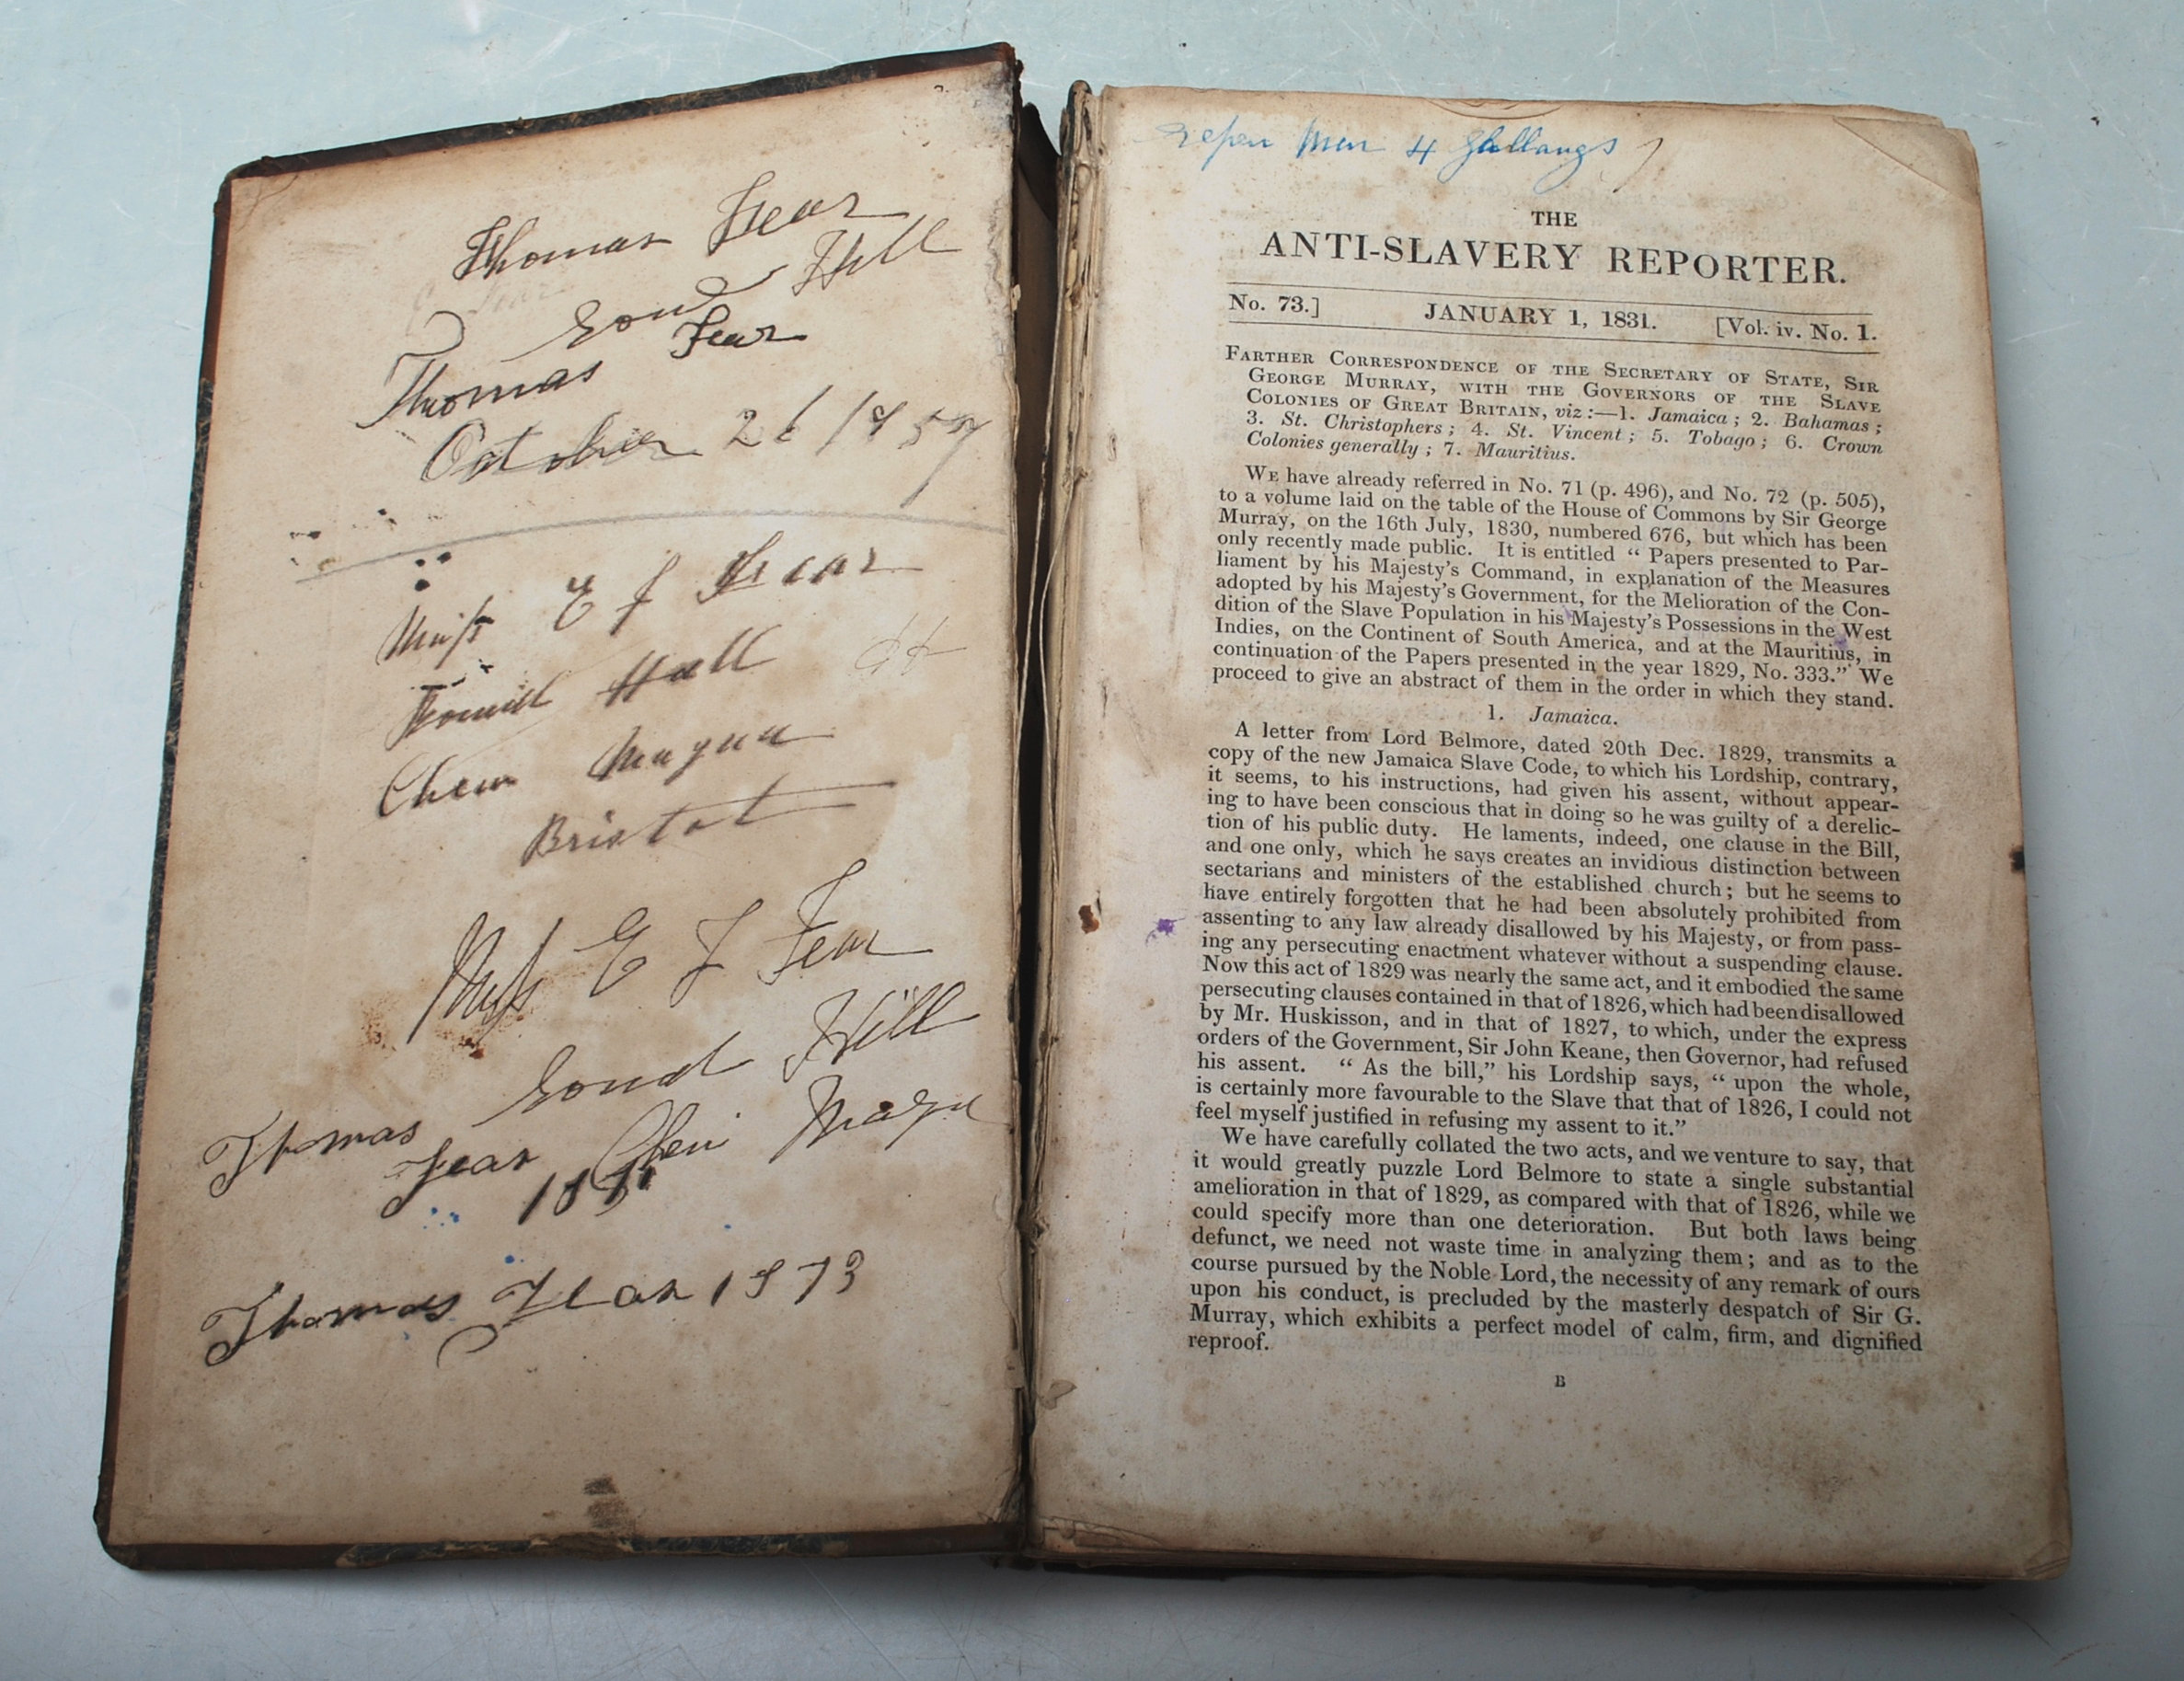 Thomas Fear
Hill
Thomas Fear
October 26 1857
Miss E J Fear
Hall
Chew Magna
Bristol
Miss E J Fear
Hill
Thomas
Fear
Thomas Fear 1873
4
THE
ANTI-SLAVERY REPORTER.
No. 73.] JANUARY 1, 1831. [Vol. iv. No. 1.
FARTHER CORRESPONDENCE OF THE SECRETARY OF STATE, SIR
GEORGE MURRAY, WITH THE GOVERNORS OF THE SLAVE
COLONIES OF GREAT BRITAIN, viz :—1. Jamaica ; 2. Bahamas ;
3. St. Christophers ; 4. St. Vincent ; 5. Tobago ; 6. Crown
Colonies generally ; 7. Mauritius.
WE have already referred in No. 71 (p. 496), and No. 72 (p. 505),
to a volume laid on the table of the House of Commons by Sir George
Murray, on the 16th July, 1830, numbered 676, but which has been
only recently made public. It is entitled “ Papers presented to Par-
liament by his Majesty's Command, in explanation of the Measures
adopted by his Majesty's Government, for the Melioration of the Con-
dition of the Slave Population in his Majesty's Possessions in the West
Indies, on the Continent of South America, and at the Mauritius, in
continuation of the Papers presented in the year 1829, No. 333.” We
proceed to give an abstract of them in the order in which they stand.
1. Jamaica.
A letter from Lord Belmore, dated 20th Dec. 1829, transmits a
copy of the new Jamaica Slave Code, to which his Lordship, contrary,
it seems, to his instructions, had given his assent, without appear-
ing to have been conscious that in doing so he was guilty of a derelic-
tion of his public duty. He laments, indeed, one clause in the Bill,
and one only, which he says creates an invidious distinction between
sectarians and ministers of the established church ; but he seems to
have entirely forgotten that he had been absolutely prohibited from
assenting to any law already disallowed by his Majesty, or from pass-
ing any persecuting enactment whatever without a suspending clause.
Now this act of 1829 was nearly the same act, and it embodied the same
persecuting clauses contained in that of 1826, which had been disallowed
by Mr. Huskisson, and in that of 1827, to which, under the express
orders of the Government, Sir John Keane, then Governor, had refused
his assent. “ As the bill,” his Lordship says, “ upon the whole,
is certainly more favourable to the Slave that that of 1826, I could not
feel myself justified in refusing my assent to it.”
We have carefully collated the two acts, and we venture to say, that
it would greatly puzzle Lord Belmore to state a single substantial
amelioration in that of 1829, as compared with that of 1826, while we
could specify more than one deterioration. But both laws being
defunct, we need not waste time in analyzing them ; and as to the
course pursued by the Noble Lord, the necessity of any remark of ours
upon his conduct, is precluded by the masterly despatch of Sir G.
Murray, which exhibits a perfect model of calm, firm, and dignified
reproof.
B